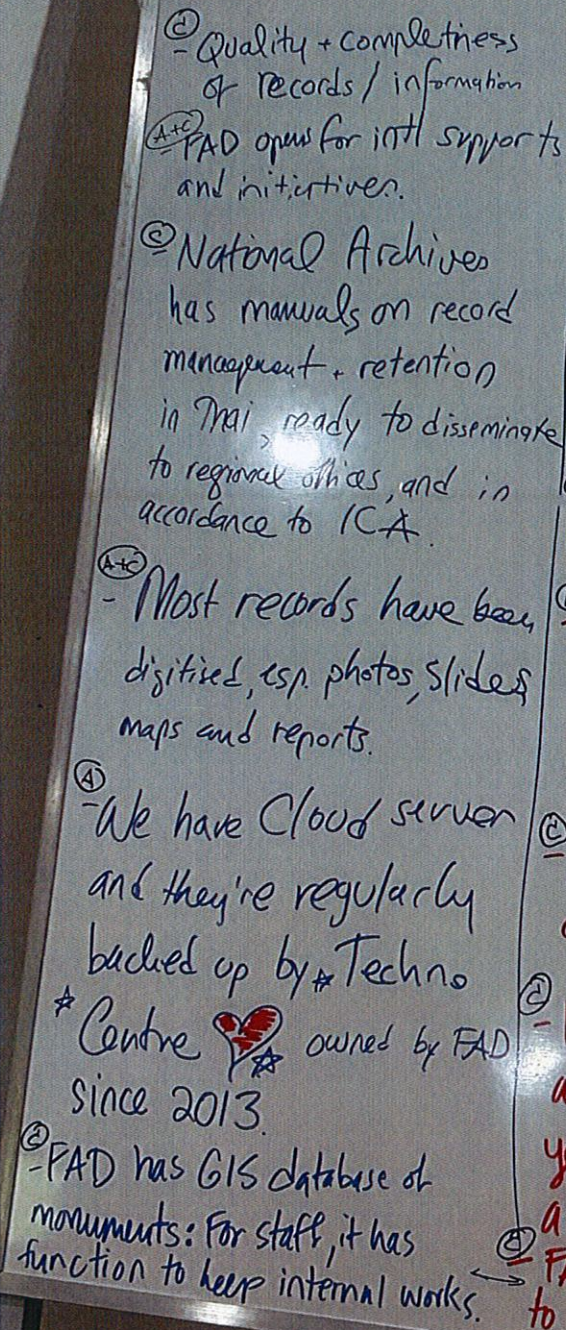 (d)
- Quality + completness
of records / information
(A+C)
- FAD opens for int'l supports
and initiatives.
(C)
- National Archives
has manuals on record
management + retention
in Thai, ready to disseminate
to regional offices, and in
accordance to ICA.
(A+C)
- Most records have been
digitised, esp. photos, slides
maps and reports.
(A)
- We have Cloud server
and they're regularly
backed up by Techno
Centre owned by FAD
since 2013.
(d)
- FAD has GIS database of
monuments: For staff, it has
function to keep internal works.
(d)
(d)
a
y
a
(d)
to